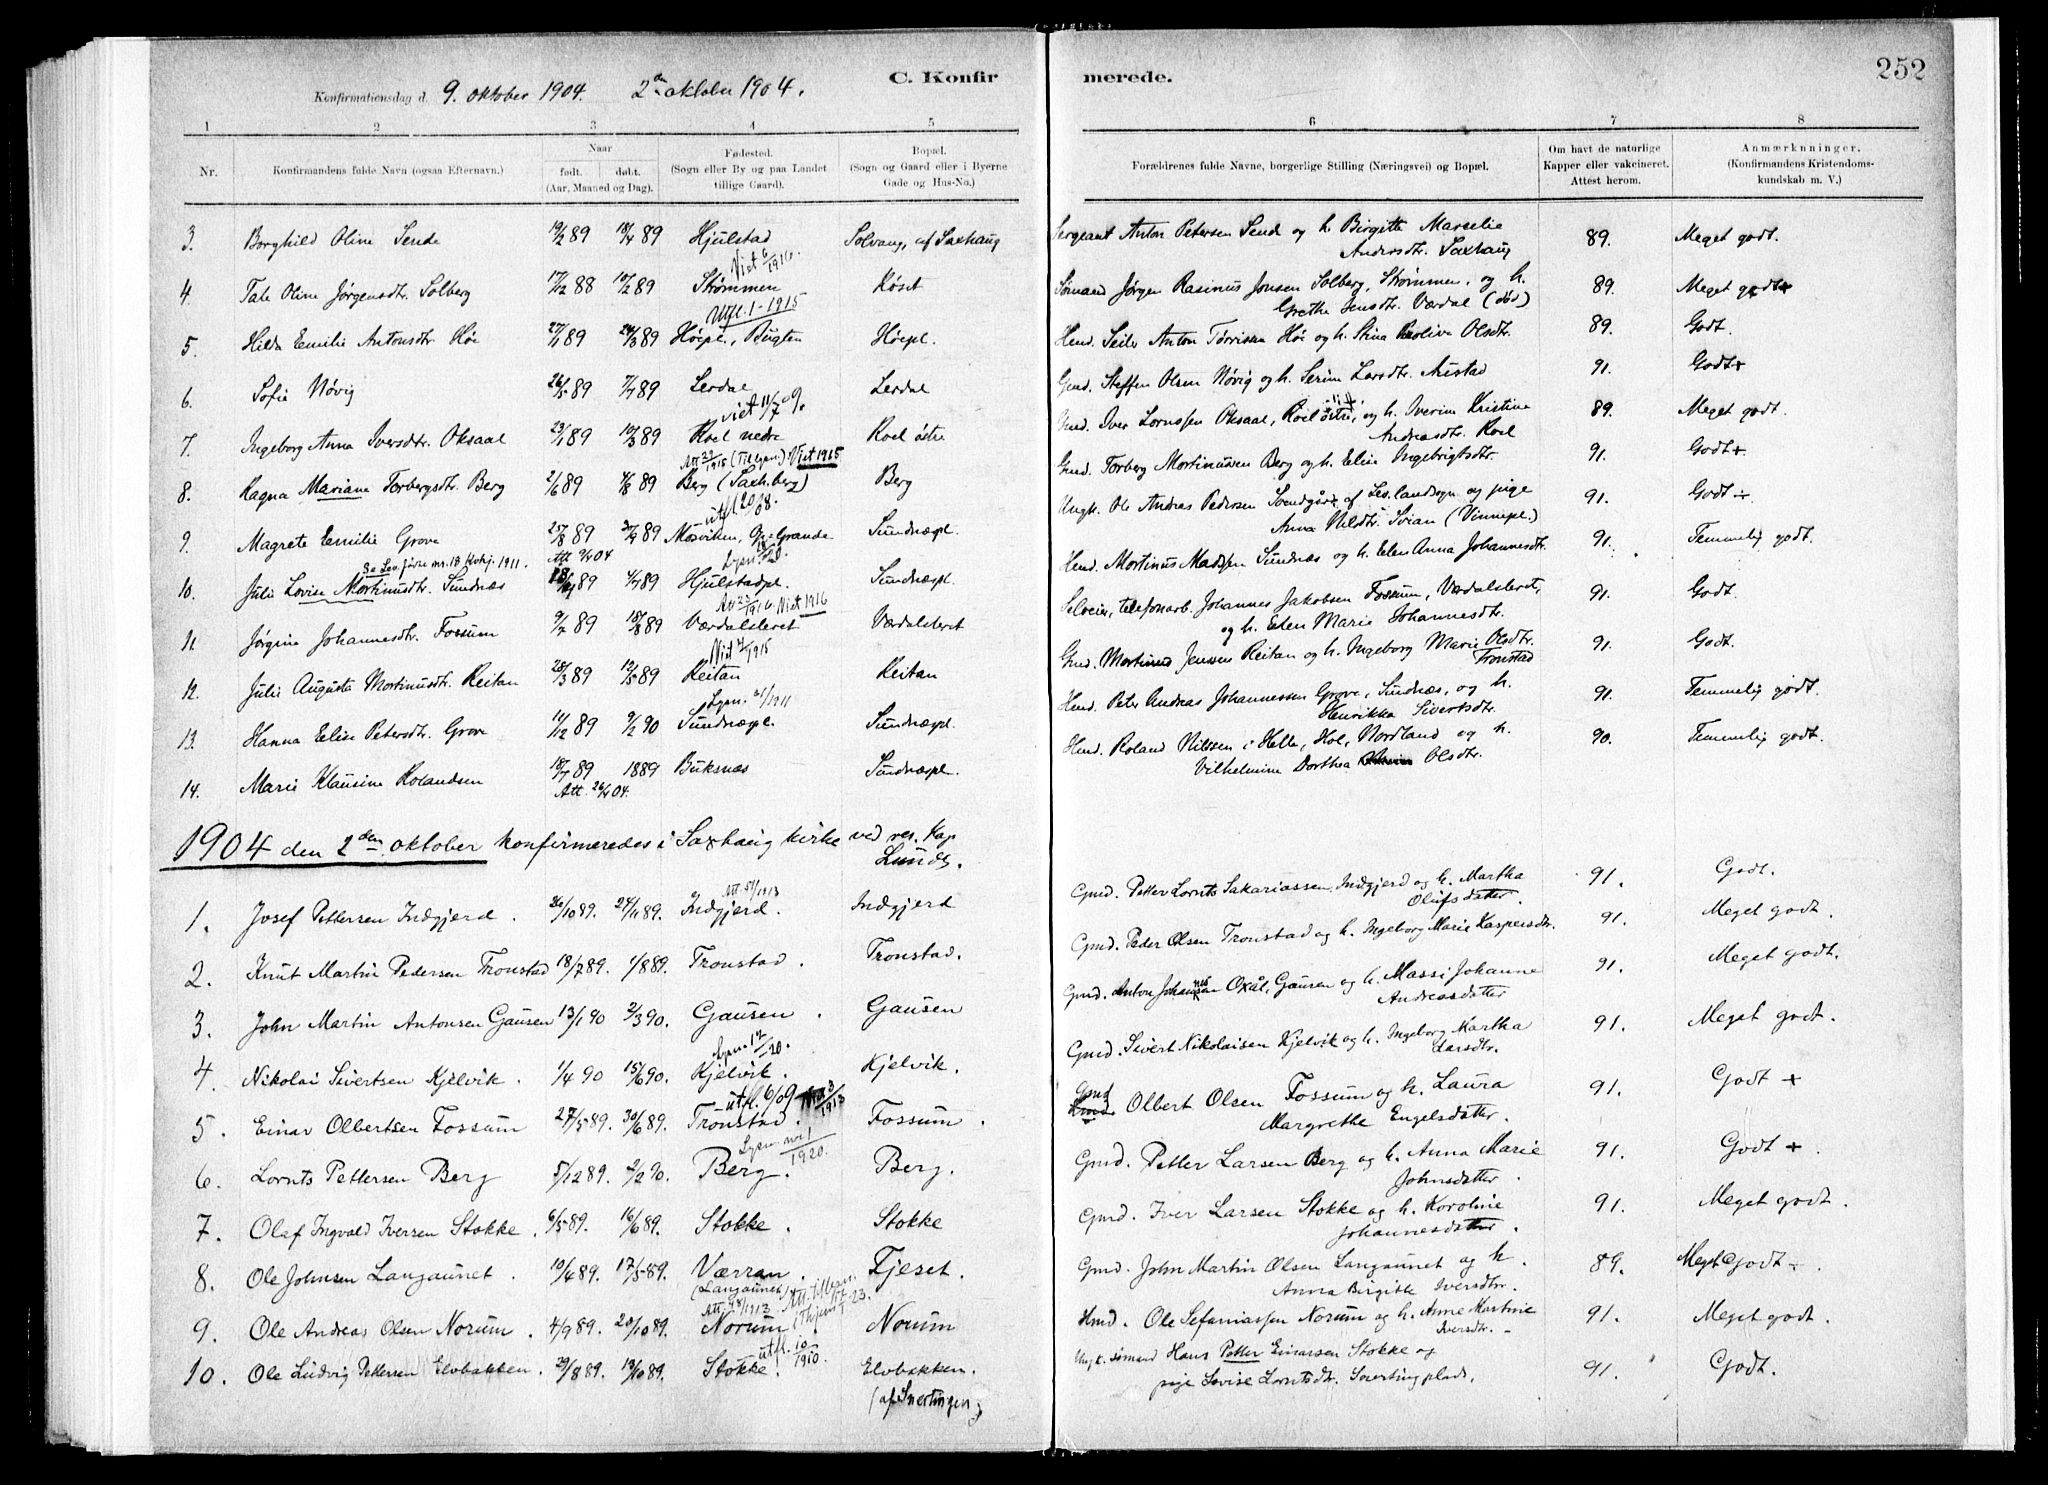 C. Konfir merede. 252
Konfirmationsdag d. 9. oktober 1904. 2den oktober 1904.
1 2 3 4 5 6 7 8
Nr.
Konfirmandens fulde Navn (ogsaa Efternavn.)
Naar
født. døbt.
(Aar, Maaned og Dag).
Fødested.
(Sogn eller By og paa Landet
tillige Gaard).
Bopæl.
(Sogn og Gaard eller i Byerne
Gade og Hus-No.)
Forældrenes fulde Navne, borgerlige Stilling (Næringsvei) og Bopæl.
Om havt de naturlige
Kapper eller vakcineret.
Attest herom.
Anmærkninger.
(Konfirmandens Kristendoms-
kundskab m. V.)
3. Borghild Oline Sende 19/2 89 18/4 89 Hjulstad Solvang, af Saxhaug Sergeant Anton Petersen Sende og h. Birgitte Marselie 89. Meget godt.
Andersdtr. Saxhaug
Viet 6/1916.
4. Oline Jørgensdtr. Solberg 17/12 88 10/2 89 Strømmen Køset Sømand Jørgen Rasinus Jonsen Solberg, Strømmen, og h. 89. Meget godt
Grethe Jensdtr. Værdal (død)
Utfl. 1-1915
5. Hilda Emilie Antonsdtr. Høe 27/1 89 24/3 89 Høepl., Bugten Høepl. Hmd. Seiler Anton Tørrissen Høe og h. Stina Olsdtr. 89. Godt.
6. Sofie Nøvig 26/5 89 7/7 89 Lerdal Lerdal Gmd. Steffen Olsen Nøvig og h. Serine Larsdtr. Austad 91. Godt+
viet 11/7 09.
7. Ingeborg Anna Iversdtr. Oksaal 23/1 89 10/3 89 Roel nedre Roel østre Gmd. Iver Lorntsen Oksaal, Roel østre, og h. Iverine Kristine 89. Meget godt.
Andreasdtr. Roel
Viet 1915
8. Ragna Mariane Torbergsdtr. Berg 2/6 89 4/8 89 Berg (Saxh.berg) Berg Gmd. Torberg Mortinussen Berg og h. Elise Ingebrigtsdtr. 91. Godt+
utfl 20/08.
9. Magrete Emilie Grove 25/8 89 Mosviken, Grande Sundnæspl. Ungk. Ole Andreas Pedersen af Les. landsogn og pige 91. Godt ÷
Anna Nilsdtr. Svian (Vinnepl.)
Se Lev. jævn nr. 18 1911. Att. 04
10. Julie Lovise Mortinusdtr. Sundnæs 89 4/7 89 Hjulstadpl. Sundnæspl. Hmd. Mortinus Madssen Sundnæs og h. Elen Anna Johannesdtr. 91. Temmelig godt.
Viet 1916
11. Jørgine Johannesdtr. Fossum 9/7 89 18/8 89 Værdalsleret Værdalsleret Selveier, telefonarb. Johannes Jakobsen Fossum, Værdalsleret, 91. Godt.
og h. Elen Marie Johannesdtr.
Viet 4/1915
12. Julie Augusta Mortinusdtr. Reitan 28/3 89 12/5 89 Reitan Reitan Gmd. Mortinus Jenssen Reitan og h. Ingeborg Marie Olsdtr. 91. Godt.
Tronstad
Lysn. 21/1911
13. Hanna Elise Petersdtr. Grove 11/12 89 9/2 90 Sundnæspl. Sundnæspl. Hmd. Peter Andreas Johannessen Grove, Sundnæs, og h. 91. Temmelig godt.
Henrikka Sivertsdtr.
14. Marie Klausine Rolandsen 18/7 89 1889 Buksnæs Sundnæspl. Hmd. Roland Nilssen i Helle, Hol, Nordland og h. 90. Temmelig godt.
Vilhelmine Dorthea Olsdtr.
Att. 26/4 04.
1904 den 2den oktober konfirmeredes i Saxhaug kirke ved res. Kap
Lunds.
1. Josef Pettersen Indgjerd. 20/10 89. 24/11 89. Indgjerd. Indgjerd Gmd. Petter Lornts Sakariassen Indgjerd og h. Martha 91. Godt.
Olufsdatter.
Att. 51/1913
2. Knut Martin Pedersen Tronstad 18/7 89. 1/8 89. Tronstad. Tronstad. Gmd. Peder Olsen Tronstad og h. Ingeborg Marie Kaspersdtr. 91. Meget godt.
3. John Martin Antonsen Gausen 13/1 90 2/3 90. Gausen. Gausen Gmd. Anton Johannesen Oxål, Gausen og h. Massi Johanne 91. Meget godt.
Andreasdatter
Lysn. 12/-20.
4. Nikolai Sivertsen Kjelvik. 1/4 90 15/6 90. Kjelvik. Kjelvik. Gmd. Sivert Nikolaisen Kjelvik og h. Ingeborg Martha 91. Meget godt.
Larsdtr.
utfl. 6/09 3/1913
5. Einar Olbertsen Fossum 27/5 89. 30/6 89. Tronstad. Fossum. Gmd Olbert Olsen Fossum og h. Laura 91. Godt +
Margrethe Engelsdatter.
Lysn. nr. 1/1920.
6. Lornts Pettersen Berg 5/12 89. 2/2 90. Berg. Berg. Gmd. Petter Larsen Berg og h. Anna Marie 91. Godt +.
Johnsdatter.
7. Olaf Ingvald Iversen Stokke. 6/5 89. 16/6 89. Stokke. Stokke Gmd. Iver Larsen Stokke og h. Karoline 91. Meget godt.
Johannesdatter.
8. Ole Johnsen Langaunet. 10/4 89. 17/5 89. Værran. Fjeset. Gmd. John Martin Olsen Langaunet og h. 89. Meget Godt ÷.
(Langaunet) Anna Birgitte Iversdtr.
Att. 48/1913.
9. Ole Andreas Olsen Norum. 4/9 89. 20/10 89. Norum Norum Hmd. Ole Sefaniassen Norum og h. Anne Martine 91. Meget godt.
Iversdtr.
utfl. 10/1910
10. Ole Ludvig Pettersen Elvbakken. 29/8 89. 13/10 89. Stokke. Elvbakken. Ungk. sømand Hans Petter Einarsen Stokke og 91. Godt.
(af Snertingen) pige Lovise Lorntsdtr. Snertingplads.